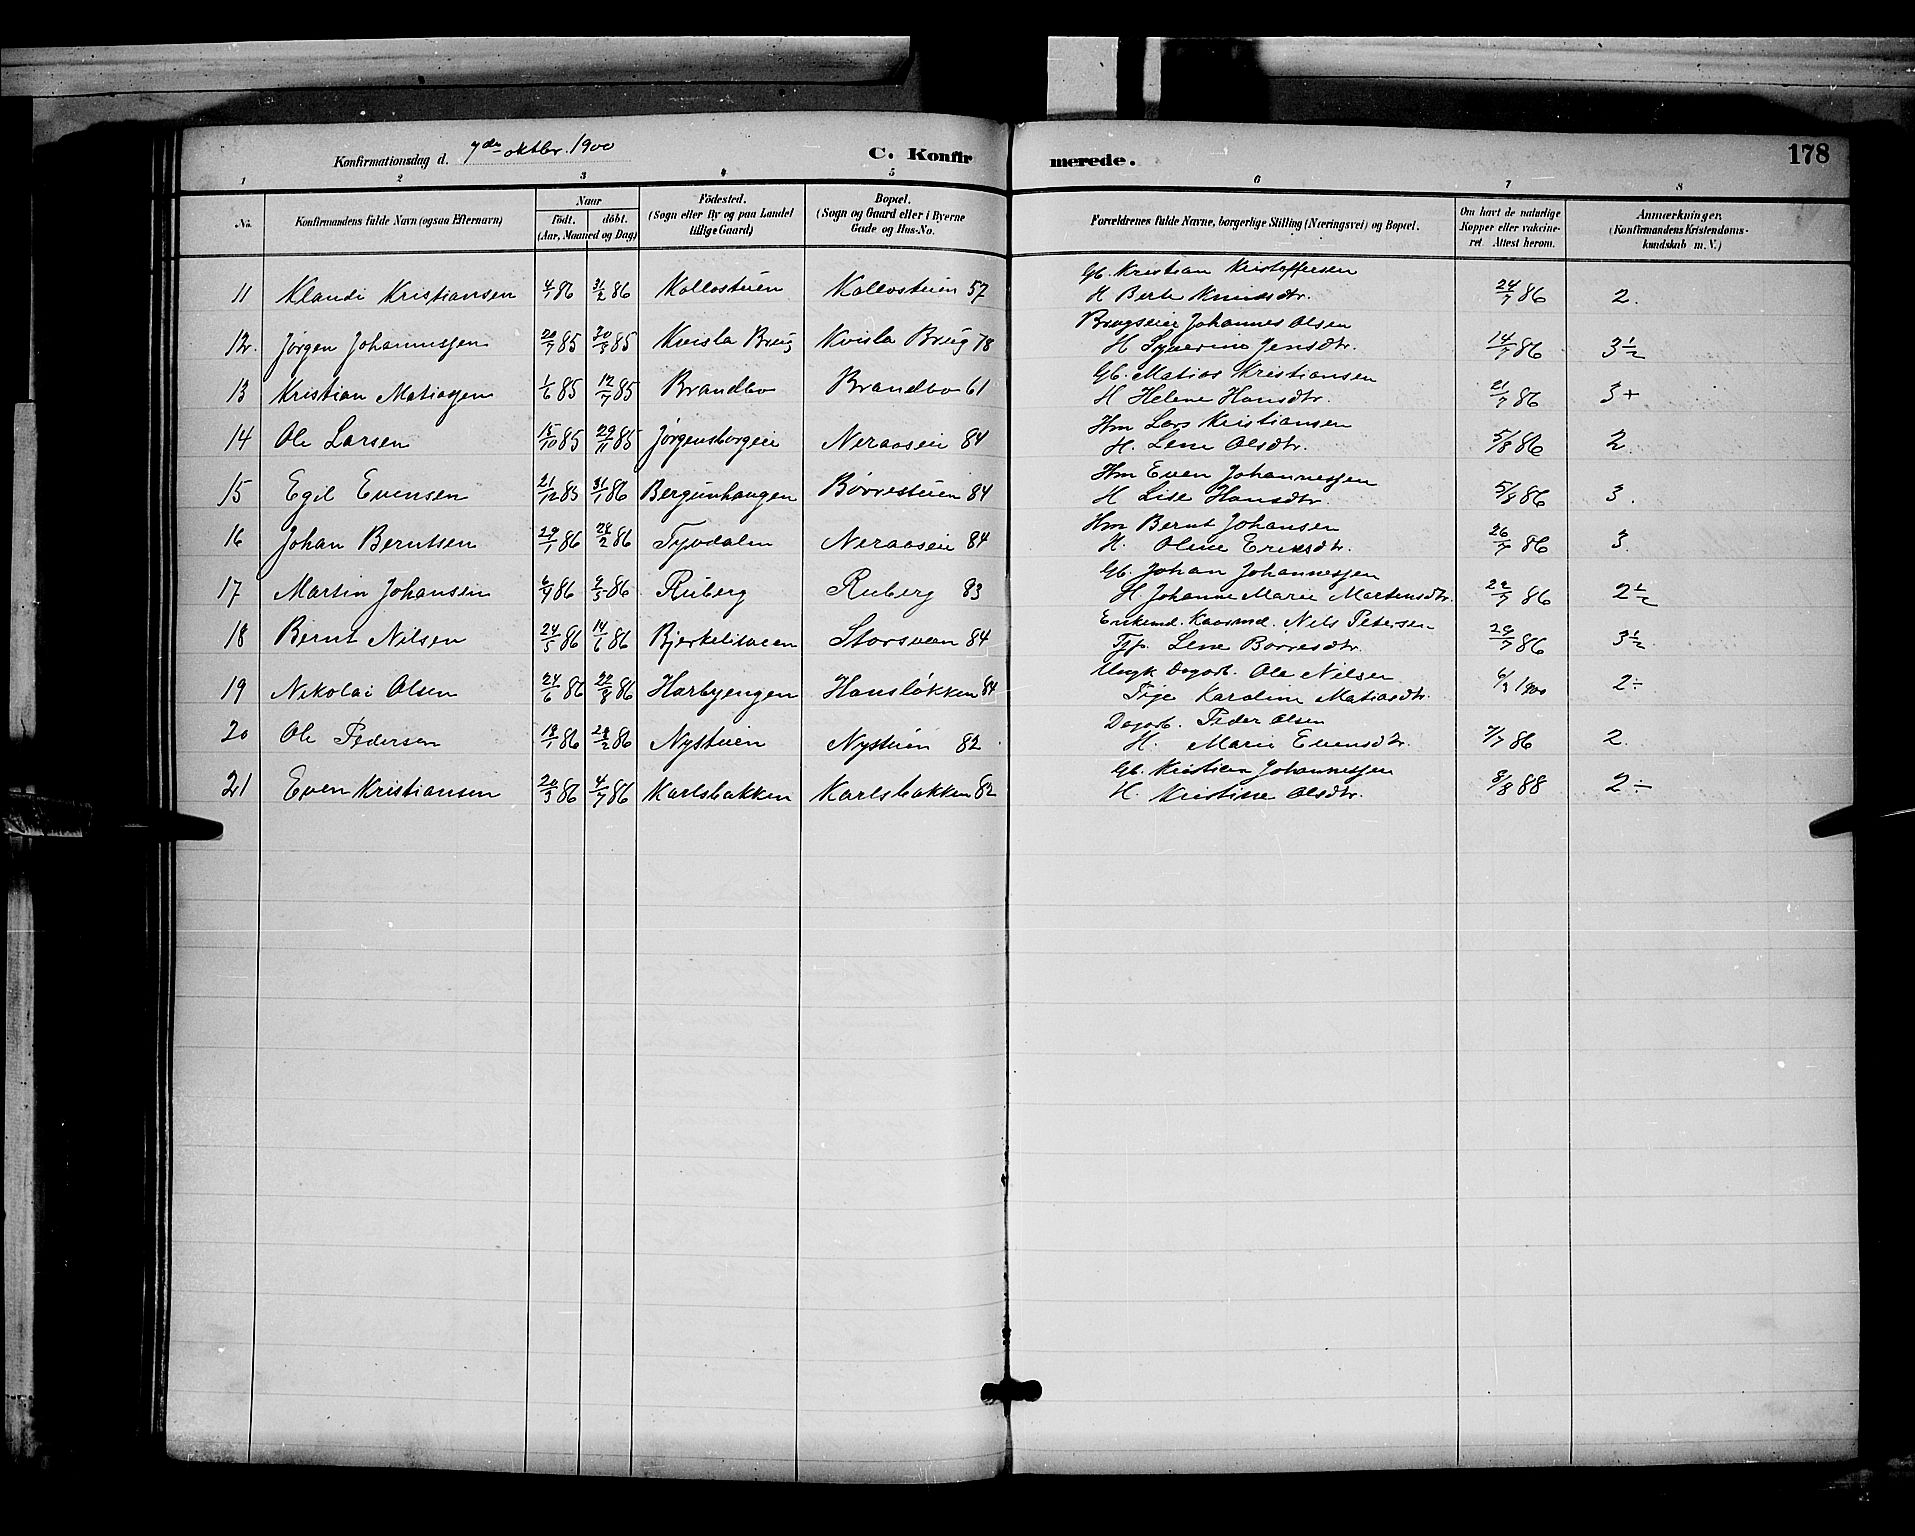 178
Konfirmationsdag d. 7de oktbr. 1900 C. Konfir merede.
1 2 3 4 5 6 7 8
No. Konfirmandens fulde Navn (ogsaa Efternavn) Naar födt. döbt. (Aar, Maaned og Dag) Födested. (Sogn eller By og paa Landet tillige Gaard) Bopæl. (Sogn og Gaard eller i Byerne Gade og Hus-No. Forældrenes fulde Navne, borgerlige Stilling (Næringsvei) og Bopæl. Om havt de naturlige Kopper eller vakcineret. Attest herom. Anmærkninger. (Konfirmandens Kristendomskundskab m. V.)
Gb. Kristian Kristoffersen
11 Klaudi Kristiansen 4/1 86 31/2 86 Kollostuen Kollostuen 57 H Berte Knudsdtr. 24/7 86 2.
Brugseier Johannes Olsen
12. Jørgen Johannessen 20/7 85 30/8 85 Kvisla Brug Kvisla Brug 78 H Syverine Jensdtr. 14/7 86 3 1/2
Gb. Matias Kristiansen
13 Kristian Matiassen 1/6 85 12/7 85 Brandbo Brandbo 61 H Helene Hansdtr. 21/7 86 3+
Hm Lars Kristiansen
14 Ole Larsen 15/10 85 29/11 85 Jørgensborgeie Neraaseie 84 H. Lene Olsdtr. 5/8 86 2.
Hm Even Johannessen
15 Egil Evensen 21/12 85 31/1 86 Bergunhaugen Børrestuen 84 H Lise Hansdtr. 5/8 86 3.
Hm Bernt Johansen
16 Johan Berntsen 29/1 86 28/2 86 Tyvdalen Neraaseie 84 H. Oline Eriksdtr. 26/7 86 3.
Gb. Johan Johannessen
17 Martin Johansen 6/4 86 9/5 86 Ruberg Ruberg 83 H Johanne Marie Martinsdtr. 22/7 86 2 1/2
Enkemd. Kaarmd. Nils Petersen
18 Bernt Nilsen 24/5 86 14/6 86 Bjerkelisveen Storsveen 84 Tjp. Lene Børresdtr. 29/7 86 3 1/2
Ungk Dagarb. Ole Nilsen
19 Nikolai Olsen 24/6 86 22/8 86 Harbyengen Hansløkken 84 Pige Karoline Matiasdtr. 6/9 1900 2÷
Dagarb. Peder Olsen
20 Ole Pedersen 19/1 86 28/2 86 Nystuen Nystuen 82 H. Marie Evensdtr. 7/7 86 2.
Gb. Kristian Johannessen
21 Even Kristiansen 20/3 86 4/7 86 Karlsbakken Karlsbakken 82 H. Kristine Olsdtr. 3/8 88 2÷